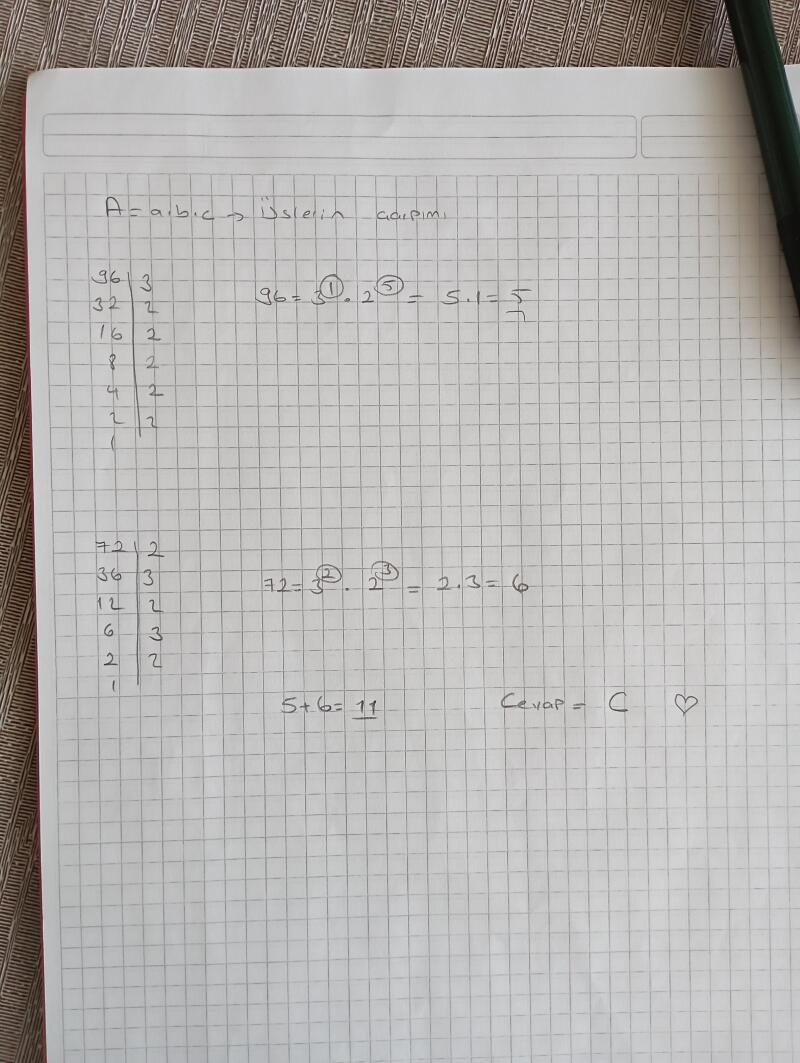 A = a.b.c → Üslerin çarpımı
96 | 3
32 | 2
16 | 2
8 | 2
4 | 2
2 | 2
1
96 = 3¹ . 2⁵ = 5.1 = 5
72 | 2
36 | 3
12 | 2
6 | 3
2 | 2
1
72 = 3² . 2³ = 2.3 = 6
5+6= 11 Cevap = C ♡